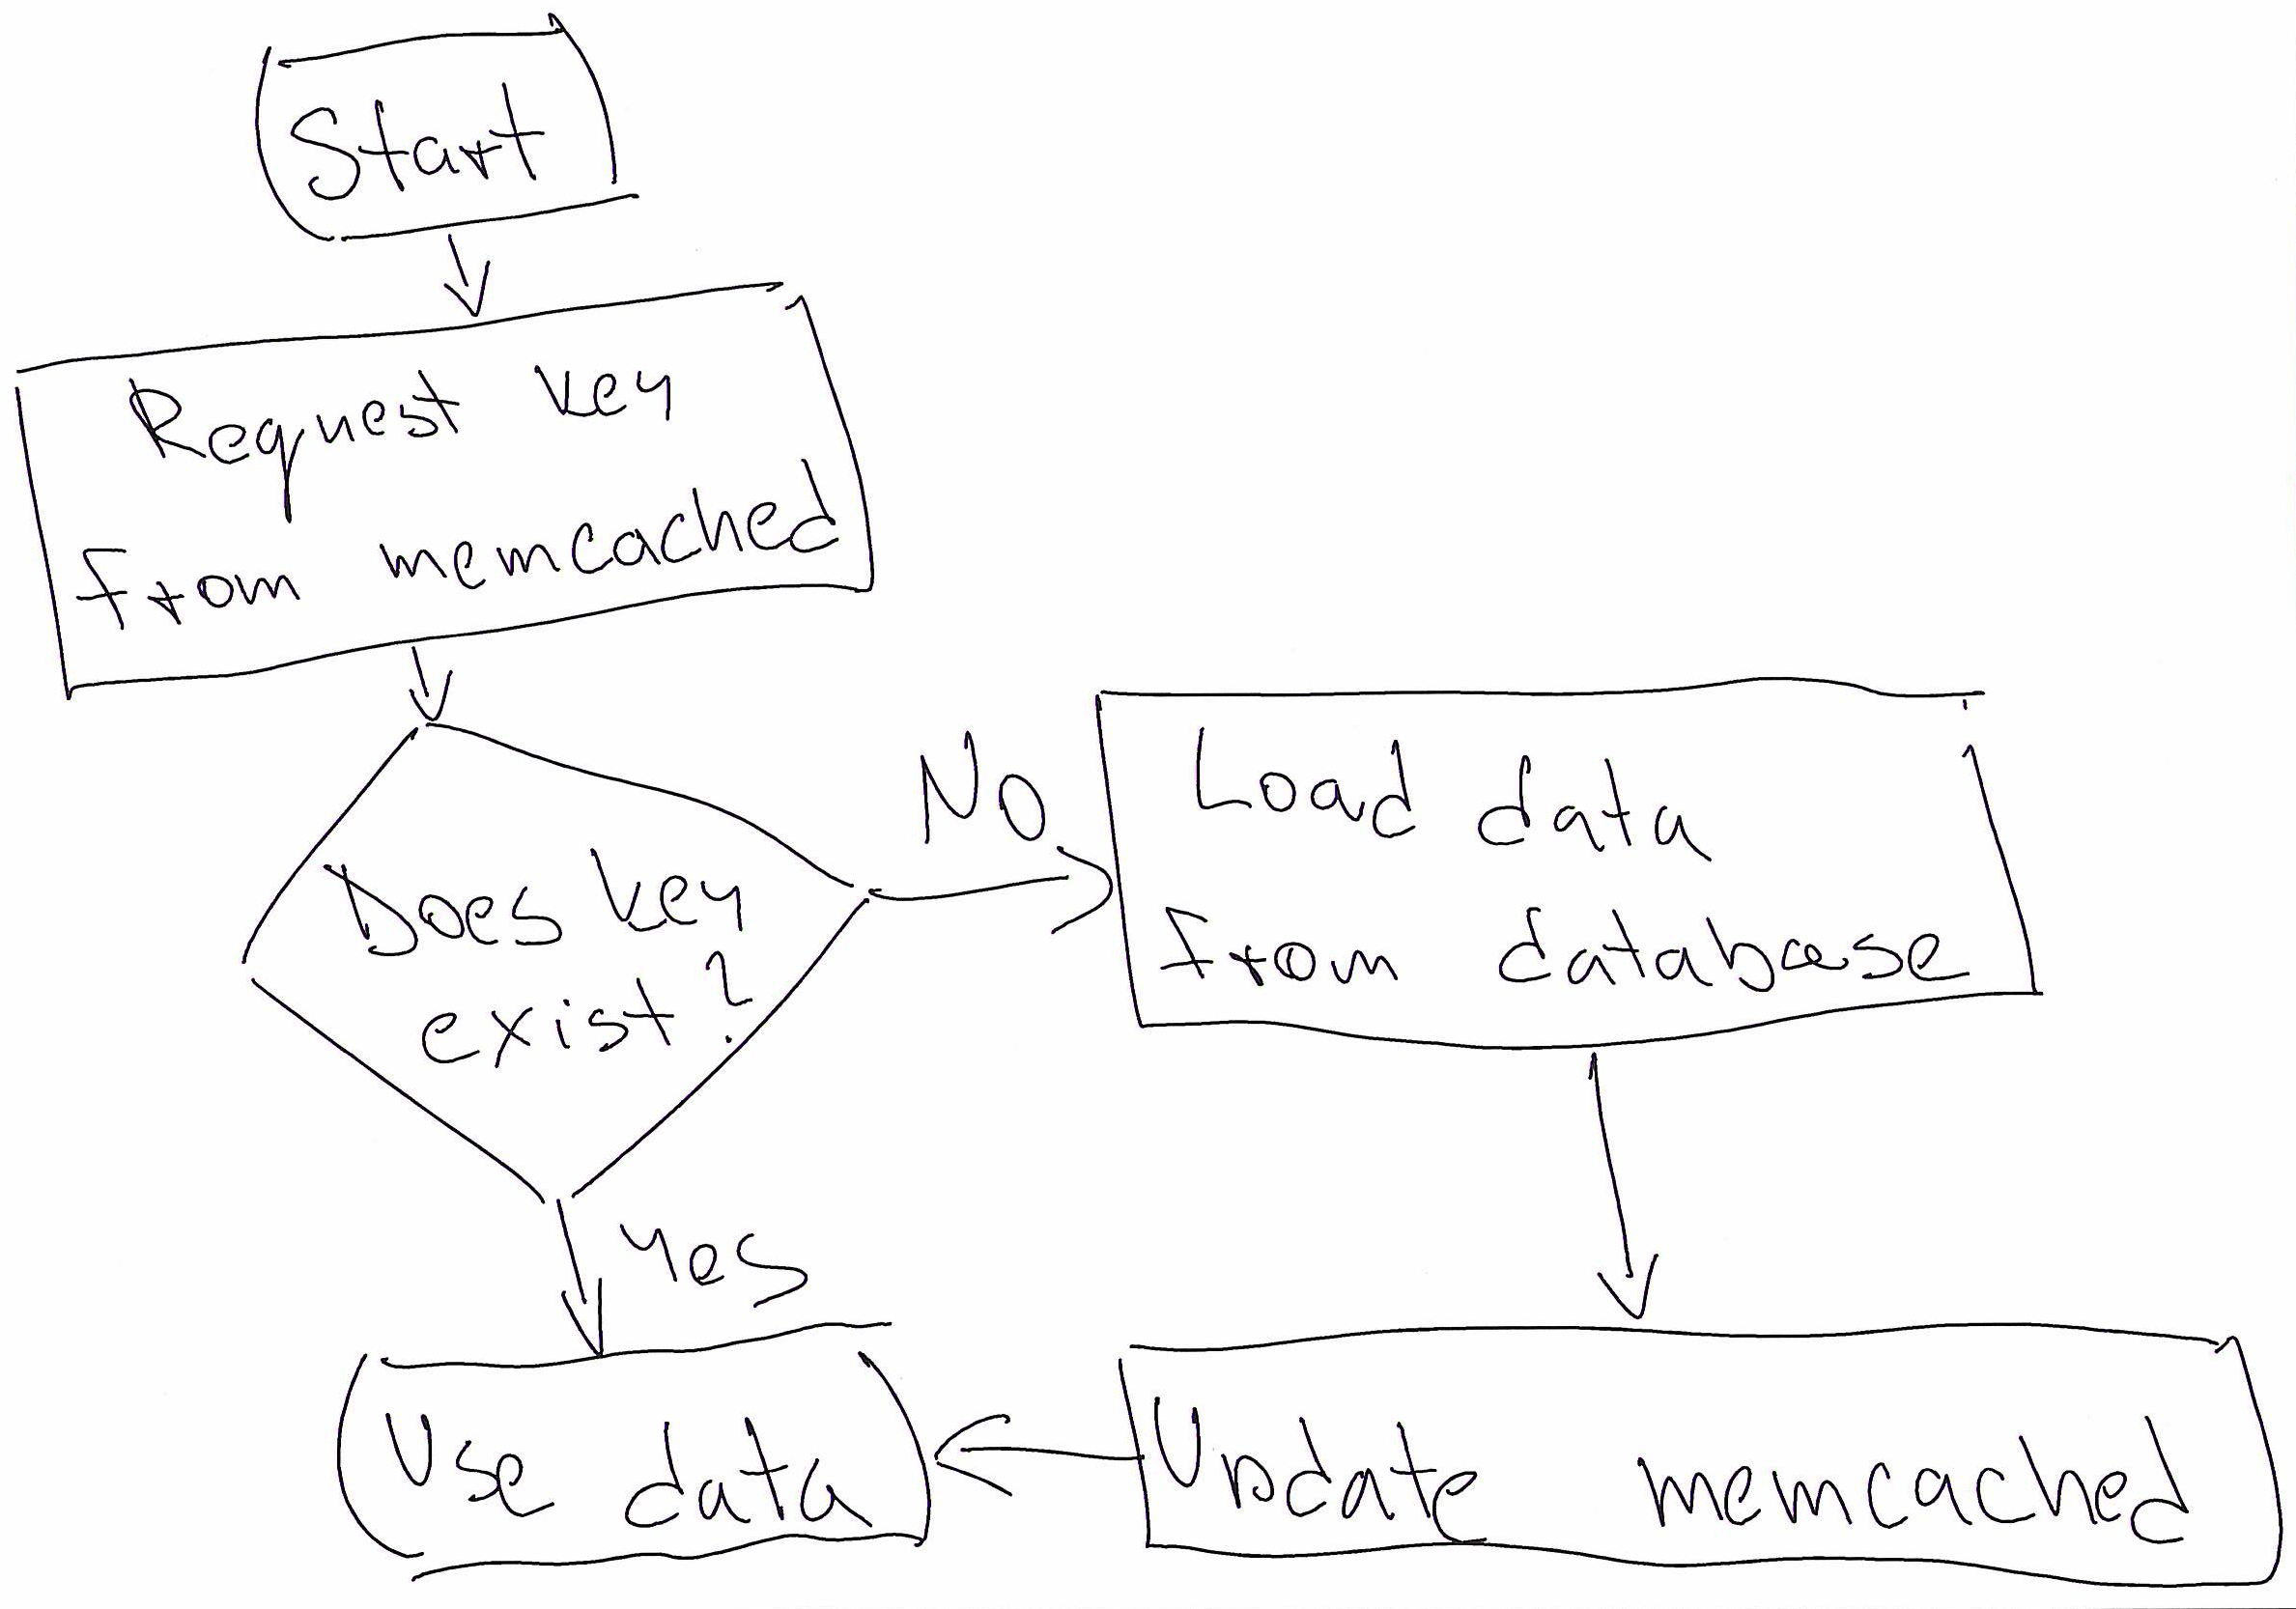 Start
Request key
From memcached
Does key
exist?
No
Load data
From database
Yes
Use data
Update memcached